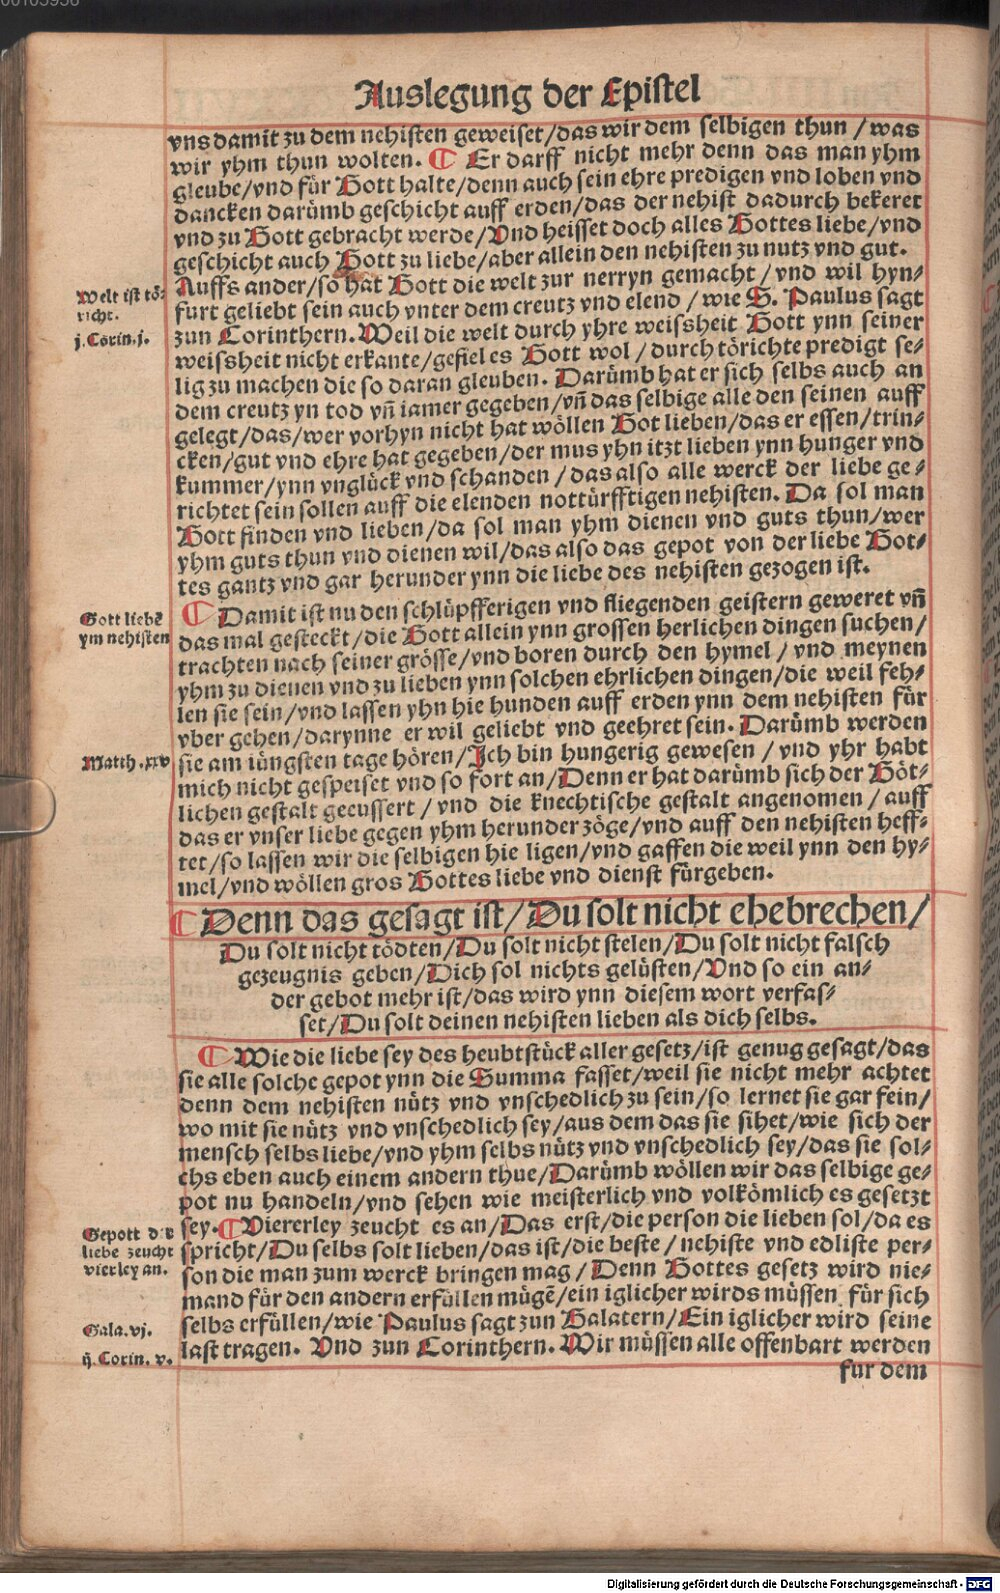 Auslegung der Epistel
vns damit zu dem nehisten geweiset/das wir dem selbigen thun/was
wir yhm thun wolten. ¶ Er darff nicht mehr denn das man yhm
gleube/vnd für Gott halte/denn auch sein ehre predigen vnd loben vnd
dancken darümb geschicht auff erden/das der nehist dadurch bekeret
vnd zu Gott gebracht werde/Vnd heisset doch alles Gottes liebe/vnd
geschicht auch Gott zu liebe/aber allein den nehisten zu nutz vnd gut.
Auffs ander/so hat Gott die welt zur nerryn gemacht/vnd wil hyn⸗
furt geliebt sein auch vnter dem creutz vnd elend/wie S. Paulus sagt
zun Corinthern. Weil die welt durch yhre weissheit Gott ynn seiner
weissheit nicht erkante/gefiel es Gott wol/durch törichte predigt se⸗
lig zu machen die so daran gleuben. Darümb hat er sich selbs auch an
dem creutz yn tod vñ iamer gegeben/vñ das selbige alle den seinen auff
gelegt/das/wer vorhyn nicht hat wöllen Got lieben/das er essen/trin⸗
cken/gut vnd ehre hat gegeben/der mus yhn itzt lieben ynn hunger vnd
kummer/ynn vnglück vnd schanden/das also alle werck der liebe ge⸗
richtet sein sollen auff die elenden nottürfftigen nehisten. Da sol man
Gott finden vnd lieben/da sol man yhm dienen vnd guts thun/wer
yhm guts thun vnd dienen wil/das also das gepot von der liebe Got⸗
tes gantz vnd gar herunder ynn die liebe des nehisten gezogen ist.
Welt ist tö⸗
richt.
j. Corin. j.
¶ Damit ist nu den schlüpfferigen vnd fliegenden geistern geweret vñ
das mal gesteckt/die Gott allein ynn grossen herlichen dingen suchen/
trachten nach seiner grösse/vnd boren durch den hymel/vnd meynen
yhm zu dienen vnd zu lieben ynn solchen ehrlichen dingen/die weil feh⸗
len sie sein/vnd lassen yhn hie hunden auff erden ynn dem nehisten für
vber gehen/darynne er wil geliebt vnd geehret sein. Darümb werden
sie am iüngsten tage hören/Ich bin hungerig gewesen/vnd yhr habt
mich nicht gespeiset vnd so fort an/Denn er hat darümb sich der Göt⸗
lichen gestalt geeussert/vnd die knechtische gestalt angenomen/auff
das er vnser liebe gegen yhm herunder zöge/vnd auff den nehisten heff⸗
tet/so lassen wir die selbigen hie ligen/vnd gaffen die weil ynn den hy⸗
mel/vnd wöllen gros Gottes liebe vnd dienst fürgeben.
Gott liebē
ym nehisten
Matth. xxv
¶ Denn das gesagt ist/Du solt nicht ehebrechen/
Du solt nicht tödten/Du solt nicht stelen/Du solt nicht falsch
gezeugnis geben/Dich sol nichts gelüsten/Vnd so ein an⸗
der gebot mehr ist/das wird ynn diesem wort verfas⸗
set/Du solt deinen nehisten lieben als dich selbs.
¶ Wie die liebe sey des heubtstück aller gesetz/ist genug gesagt/das
sie alle solche gepot ynn die Summa fasset/weil sie nicht mehr achtet
denn dem nehisten nütz vnd vnschedlich zu sein/so lernet sie gar fein/
wo mit sie nütz vnd vnschedlich sey/aus dem das sie sihet/wie sich der
mensch selbs liebe/vnd yhm selbs nütz vnd vnschedlich sey/das sie sol⸗
chs eben auch einem andern thue/Darümb wöllen wir das selbige ge⸗
pot nu handeln/vnd sehen wie meisterlich vnd volkömlich es gesetzt
sey. ¶ Viererley zeucht es an/Das erst/die person die lieben sol/da es
spricht/Du selbs solt lieben/das ist/die beste/nehiste vnd edliste per⸗
son die man zum werck bringen mag/Denn Gottes gesetz wird nie⸗
mand für den andern erfüllen mügē/ein iglicher wirds müssen für sich
selbs erfüllen/wie Paulus sagt zun Galatern/Ein iglicher wird seine
last tragen. Vnd zun Corinthern. Wir müssen alle offenbart werden
Gepott der
liebe zeucht
vierley an.
Gala. vj.
ij. Corin. v.
fur dem
Digitalisierung gefördert durch die Deutsche Forschungsgemeinschaft - DFG